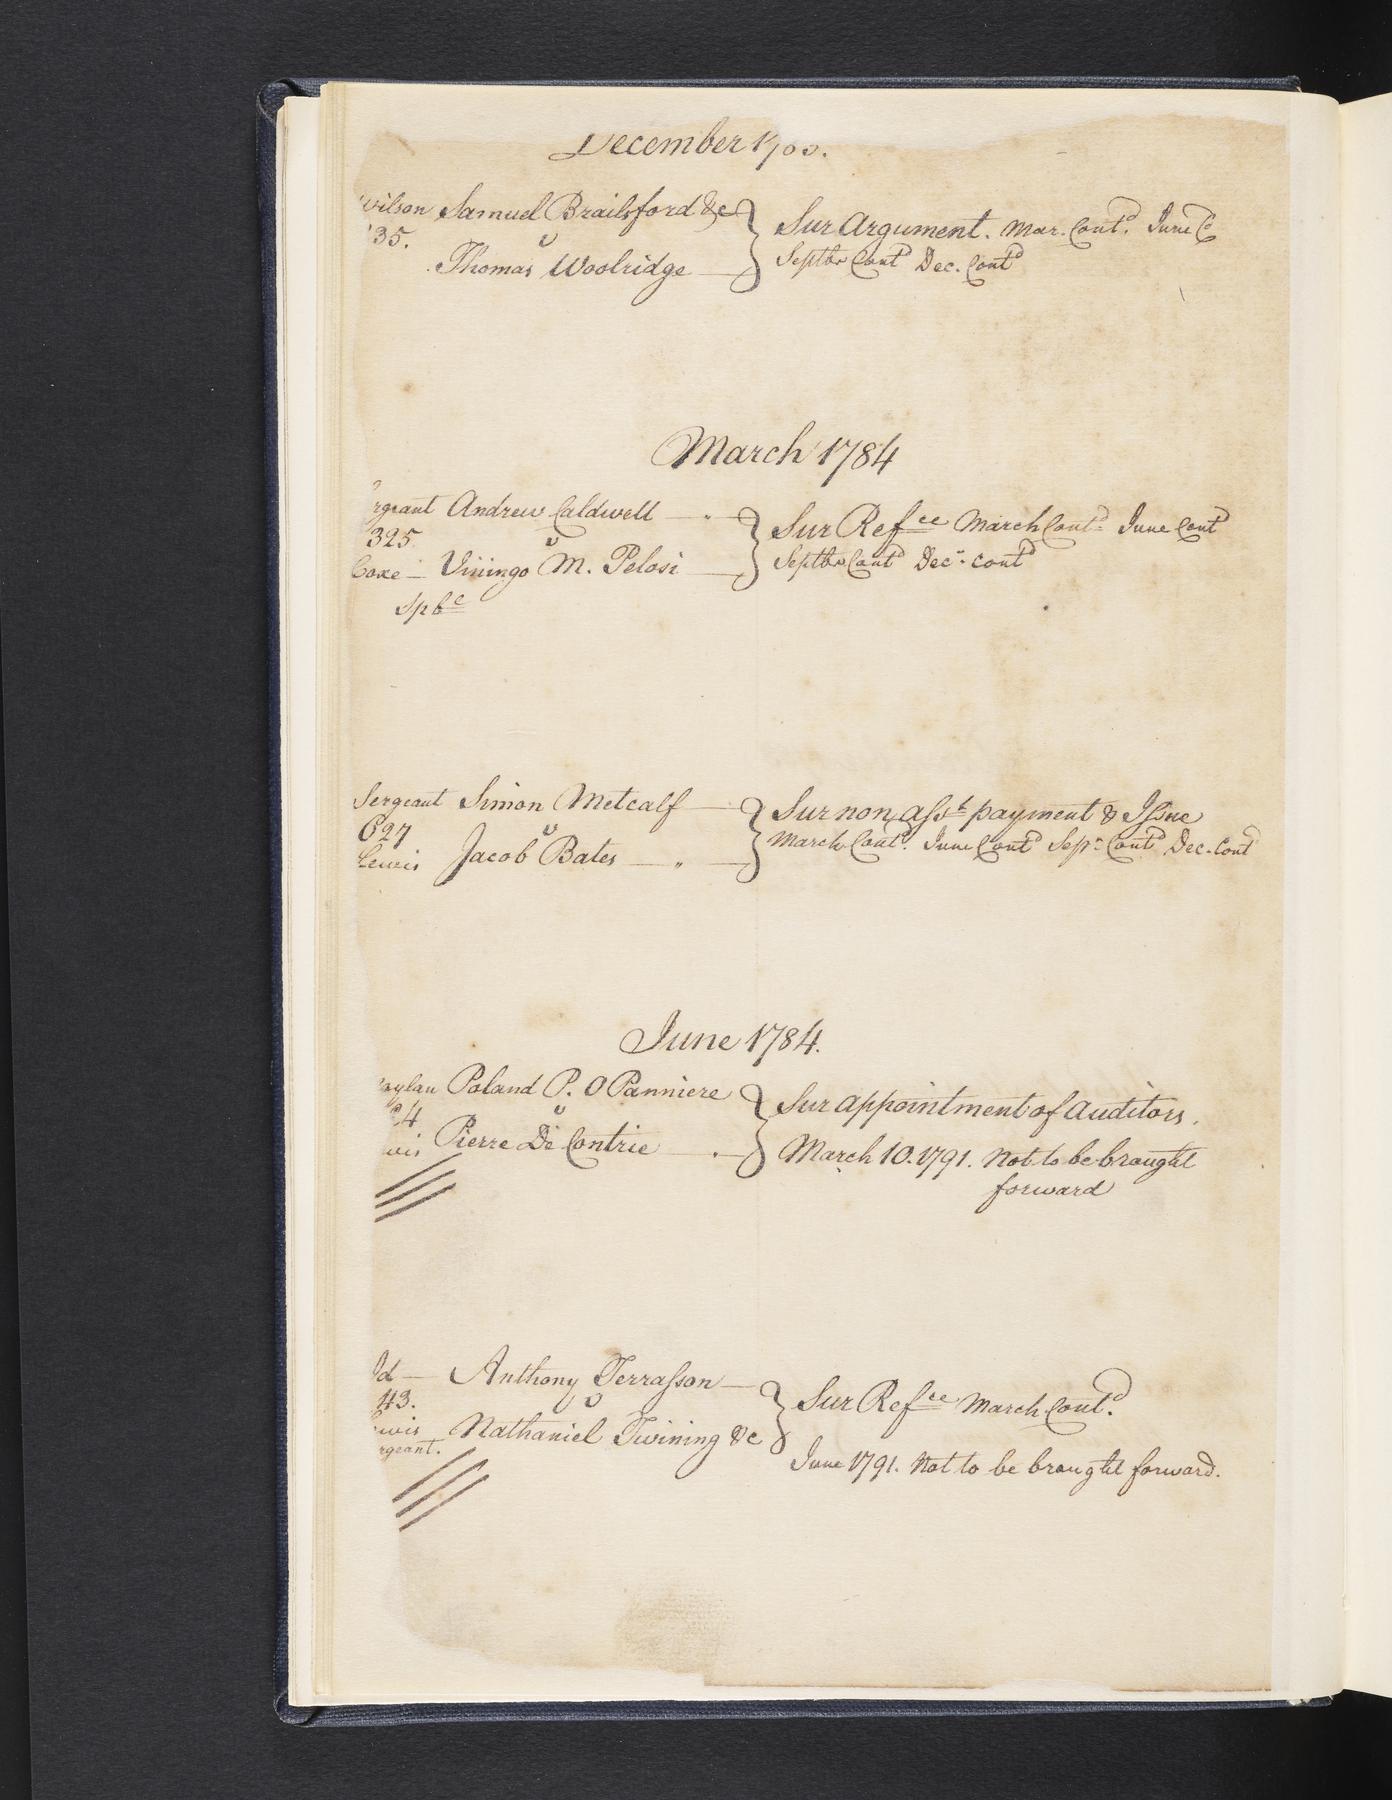 December
Wilson Samuel Brailsford &c
35. v
Thomas Woolridge
Sur Argument. Mar. Contd. June Cd
Septbr Contd Dec. Contd
March 1784
rgeant Andrew Caldwell
325 v
Coxe Viningo M. Pelosi
Spbc
Sur Refce March Contd June Contd
Septbr Contd Decr. contd
Sergeant Simon Metcalf
627 v
Lewis Jacob Bates
Sur non Asst. payment & Issue
March Contd. June Contd Sepr. Contd Dec. Contd
June 1784.
Poland P. O Panniere
4 v
wis Pierre De Contrie
Sur appointment of Auditors.
March 10. 1791. Not to be brought
forward
Id Anthony Terrasson
43. v
ewis Nathaniel Twining &c
rgeant.
Sur Refce March Contd.
June 1791. Not to be brought forward.